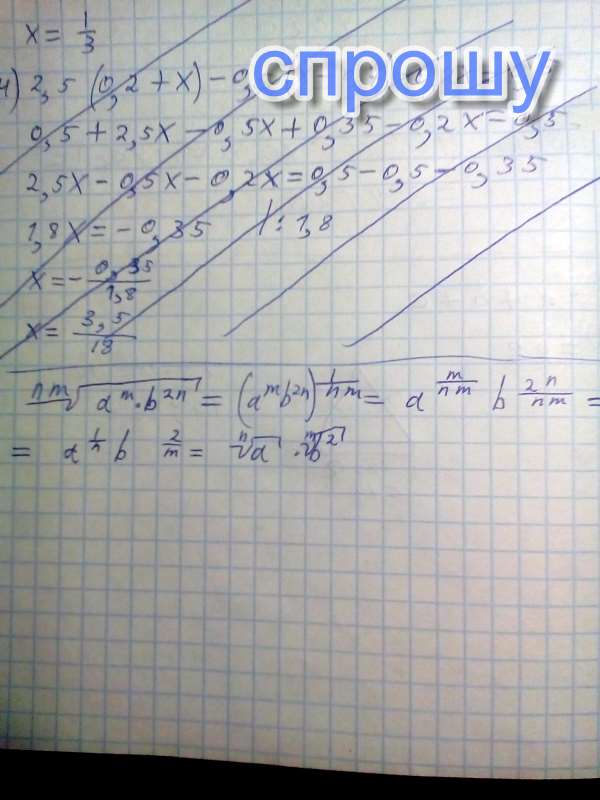 x = 1/3
4) 2,5 (0,2 + x) - 0,
спрошу
0,5 + 2,5x - 0,5x + 0,35 - 0,2x = 0,5
2,5x - 0,5x - 0,2x = 0,5 - 0,5 - 0,35
1,8x = - 0,35 /: 1,8
x = - 0,35/1,8
x = 3,5/18
ⁿᵐ√(aᵐ·b²ⁿ) = (aᵐb²ⁿ)^(1/nm) = a^(m/nm) b^(2n/nm) =
= a^(1/n) b^(2/m) = ⁿ√a · ᵐ√b²